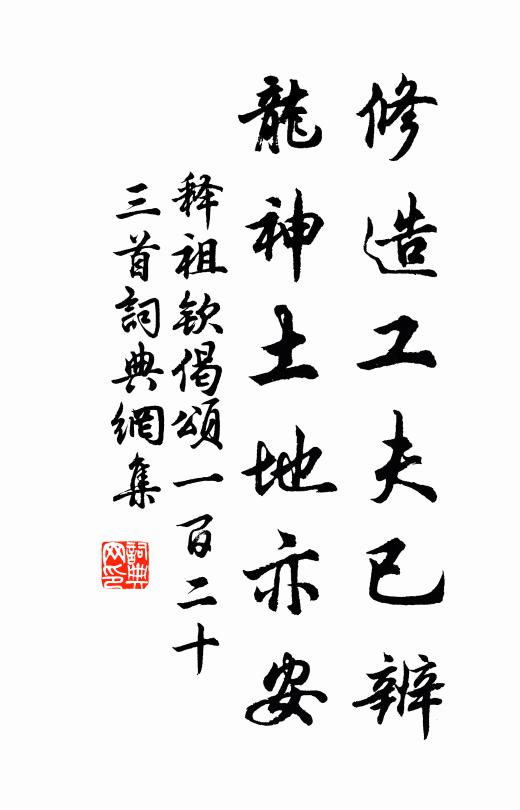 修造工夫已辨
龍神土地亦安
释祖钦偈頌一百二十
三首詞典網集
詞典网印